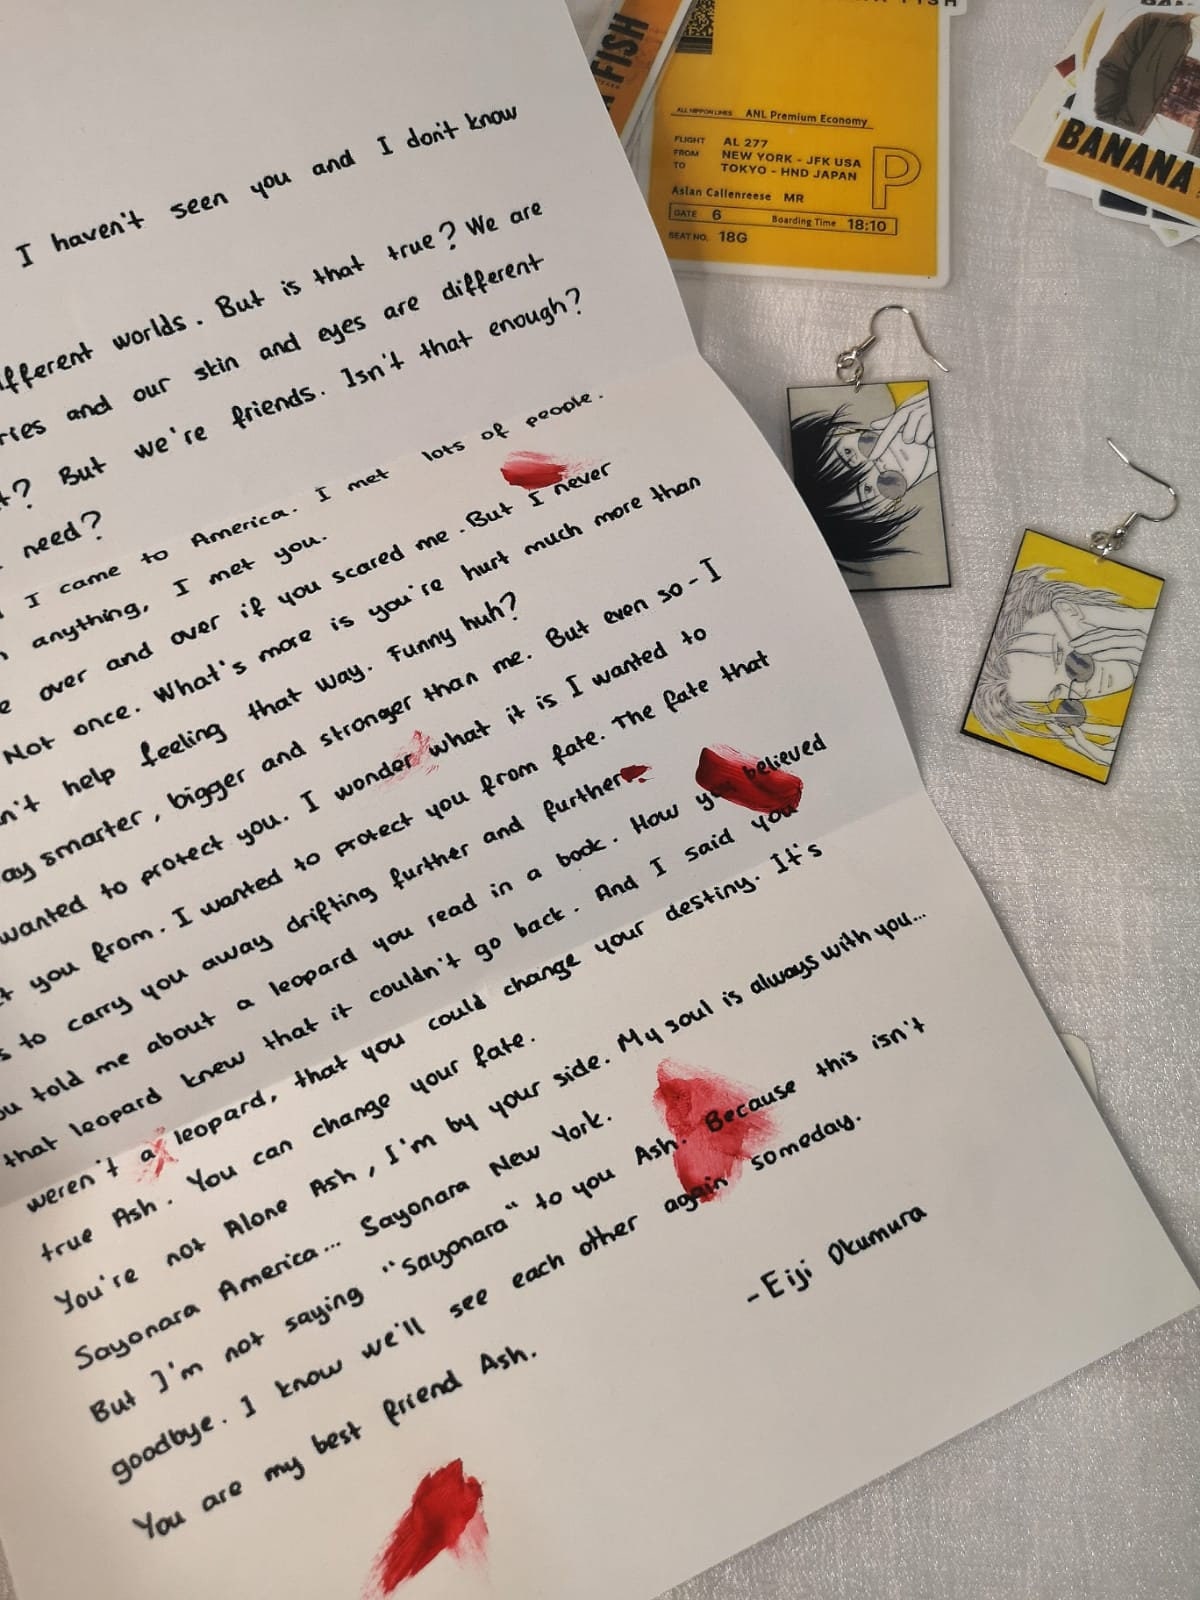 FISH
ALL NIPPON LINES ANL Premium Economy
FLIGHT AL 277
FROM NEW YORK - JFK USA
TO TOKYO - HND JAPAN
P
Aslan Callenreese MR
GATE 6 Boarding Time 18:10
SEAT NO. 18G
BANANA
I haven't seen you and I don't know
worlds. But is that true? We are
and our skin and eyes are different
? But we're friends. Isn't that enough?
need?
I came to America. I met lots of people.
anything, I met you.
over and over if you scared me. But I never
Not once. What's more is you're hurt much more than
help feeling that way. Funny huh?
smarter, bigger and stronger than me. But even so - I
wanted to protect you. I wonder what it is I wanted to
you from. I wanted to protect you from fate. The fate that
to carry you away drifting further and further.
told me about a leopard you read in a book. How you believed
that leopard knew that it couldn't go back. And I said you
weren't a leopard, that you could change your destiny. It's
true Ash. You can change your fate.
You're not Alone Ash, I'm by your side. My soul is always with you...
Sayonara America... Sayonara New York.
But I'm not saying "Sayonara" to you Ash. Because this isn't
goodbye. I know we'll see each other again someday.
You are my best friend Ash.
-Eiji Okumura